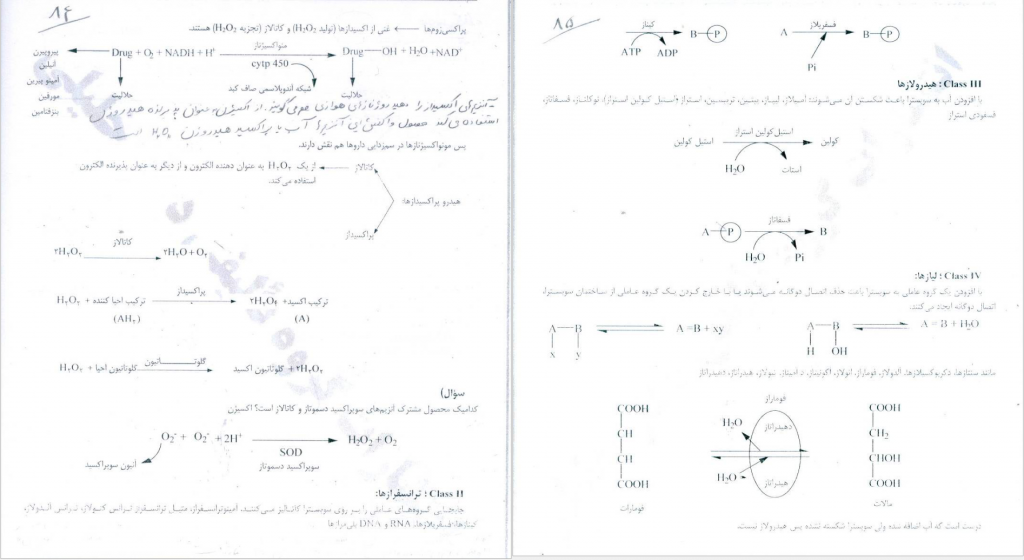 ۸۴
پراکسی‌زوم‌ها ← غنی از اکسیدازها (تولید H2O2) و کاتالاز (تجزیه H2O2) هستند.
Drug + O2 + NADH + H+ مونواکسیژناز cytp 450 Drug—OH + H2O + NAD+
پیروپیرن
آنیلین
آمینو پیرین
مورفین
بنزفتامین
حلالیت
شبکه آندوپلاسمی صاف کبد
حلالیت
آنزیم‌های اکسیداز را دهیدروژنازهای هوازی هم می‌گویند. از اکسیژن بعنوان پذیرنده هیدروژن
استفاده می‌کند محصول واکنش این آنزیم‌ها آب یا پراکسید هیدروژن H2O2 است
پس مونواکسیژنازها در سم‌زدایی داروها هم نقش دارند.
کاتالاز ← از یک H۲O۲ به عنوان دهنده الکترون و از دیگر به عنوان پذیرنده الکترون
استفاده می‌کند.
هیدرو پراکسیدازها:
پراکسیداز
۲H۲O۲ کاتالاز ۲H۲O + O۲
H۲O۲ + ترکیب احیا کننده (AH۲) پراکسیداز ۲H۲O۲ + ترکیب اکسید (A)
H۲O۲ + گلوتاتیون احیا گلوتاتیون گلوتاتیون اکسید + ۲H۲O۲
سؤال)
کدامیک محصول مشترک آنزیم‌های سوپراکسید دسموتاز و کاتالاز است؟ اکسیژن
O2- + O2- + 2H+ SOD H2O2 + O2
آنیون سوپراکسید
سوپراکسید دسموتاز
Class II : ترانسفرازها:
جابجایی گروه‌های عاملی را بر روی سوبسترا کاتالیز می‌کنند. آمینوترانسفراز، مثل ترانسفراز ترانس کتولاز، ترانس آلدولاز،
کینازها، فسفریلازها، RNA و DNA پلی‌مرازها
۸۵
کیناز ATP ADP B—P
A فسفریلاز Pi B—P
Class III : هیدرولازها
با افزودن آب به سوبسترا باعث شکستن آن می‌شوند: آمیلاز، لیپاز، پپسین، تریپسین، استراز (استیل کولین استراز)، نوکلئاز، فسفاتاز،
فسفودی استراز
استیل کولین استیل‌کولین استراز کولین
H2O استات
A—P فسفاتاز B
H2O Pi
Class IV : لیازها:
با افزودن یک گروه عاملی به سوبسترا باعث حذف اتصال دوگانه می‌شوند یا با خارج کردن یک گروه عاملی از ساختمان سوبسترا،
اتصال دوگانه ایجاد می‌کنند.
A—B A =B + xy
x y
A—B A = B + H2O
H OH
مانند سنتازها، دکربوکسیلازها، آلدولاز، فوماراز، انولاز، آکونیتاز، د آمیناز، هیدراتاز، دهیدراتاز
COOH
CH
CH
COOH
فومارات
فوماراز
دهیدراتاز
H2O
H2O
هیدراتاز
COOH
CH2
CHOH
COOH
مالات
درست است که آب اضافه شده ولی سوبسترا شکسته نشده پس هیدرولاز نیست.